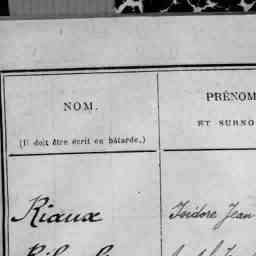 NOM. PRÉNOM
(Il doit être écrit en bâtarde.) ET SURNO
Riaux Isidore Jean